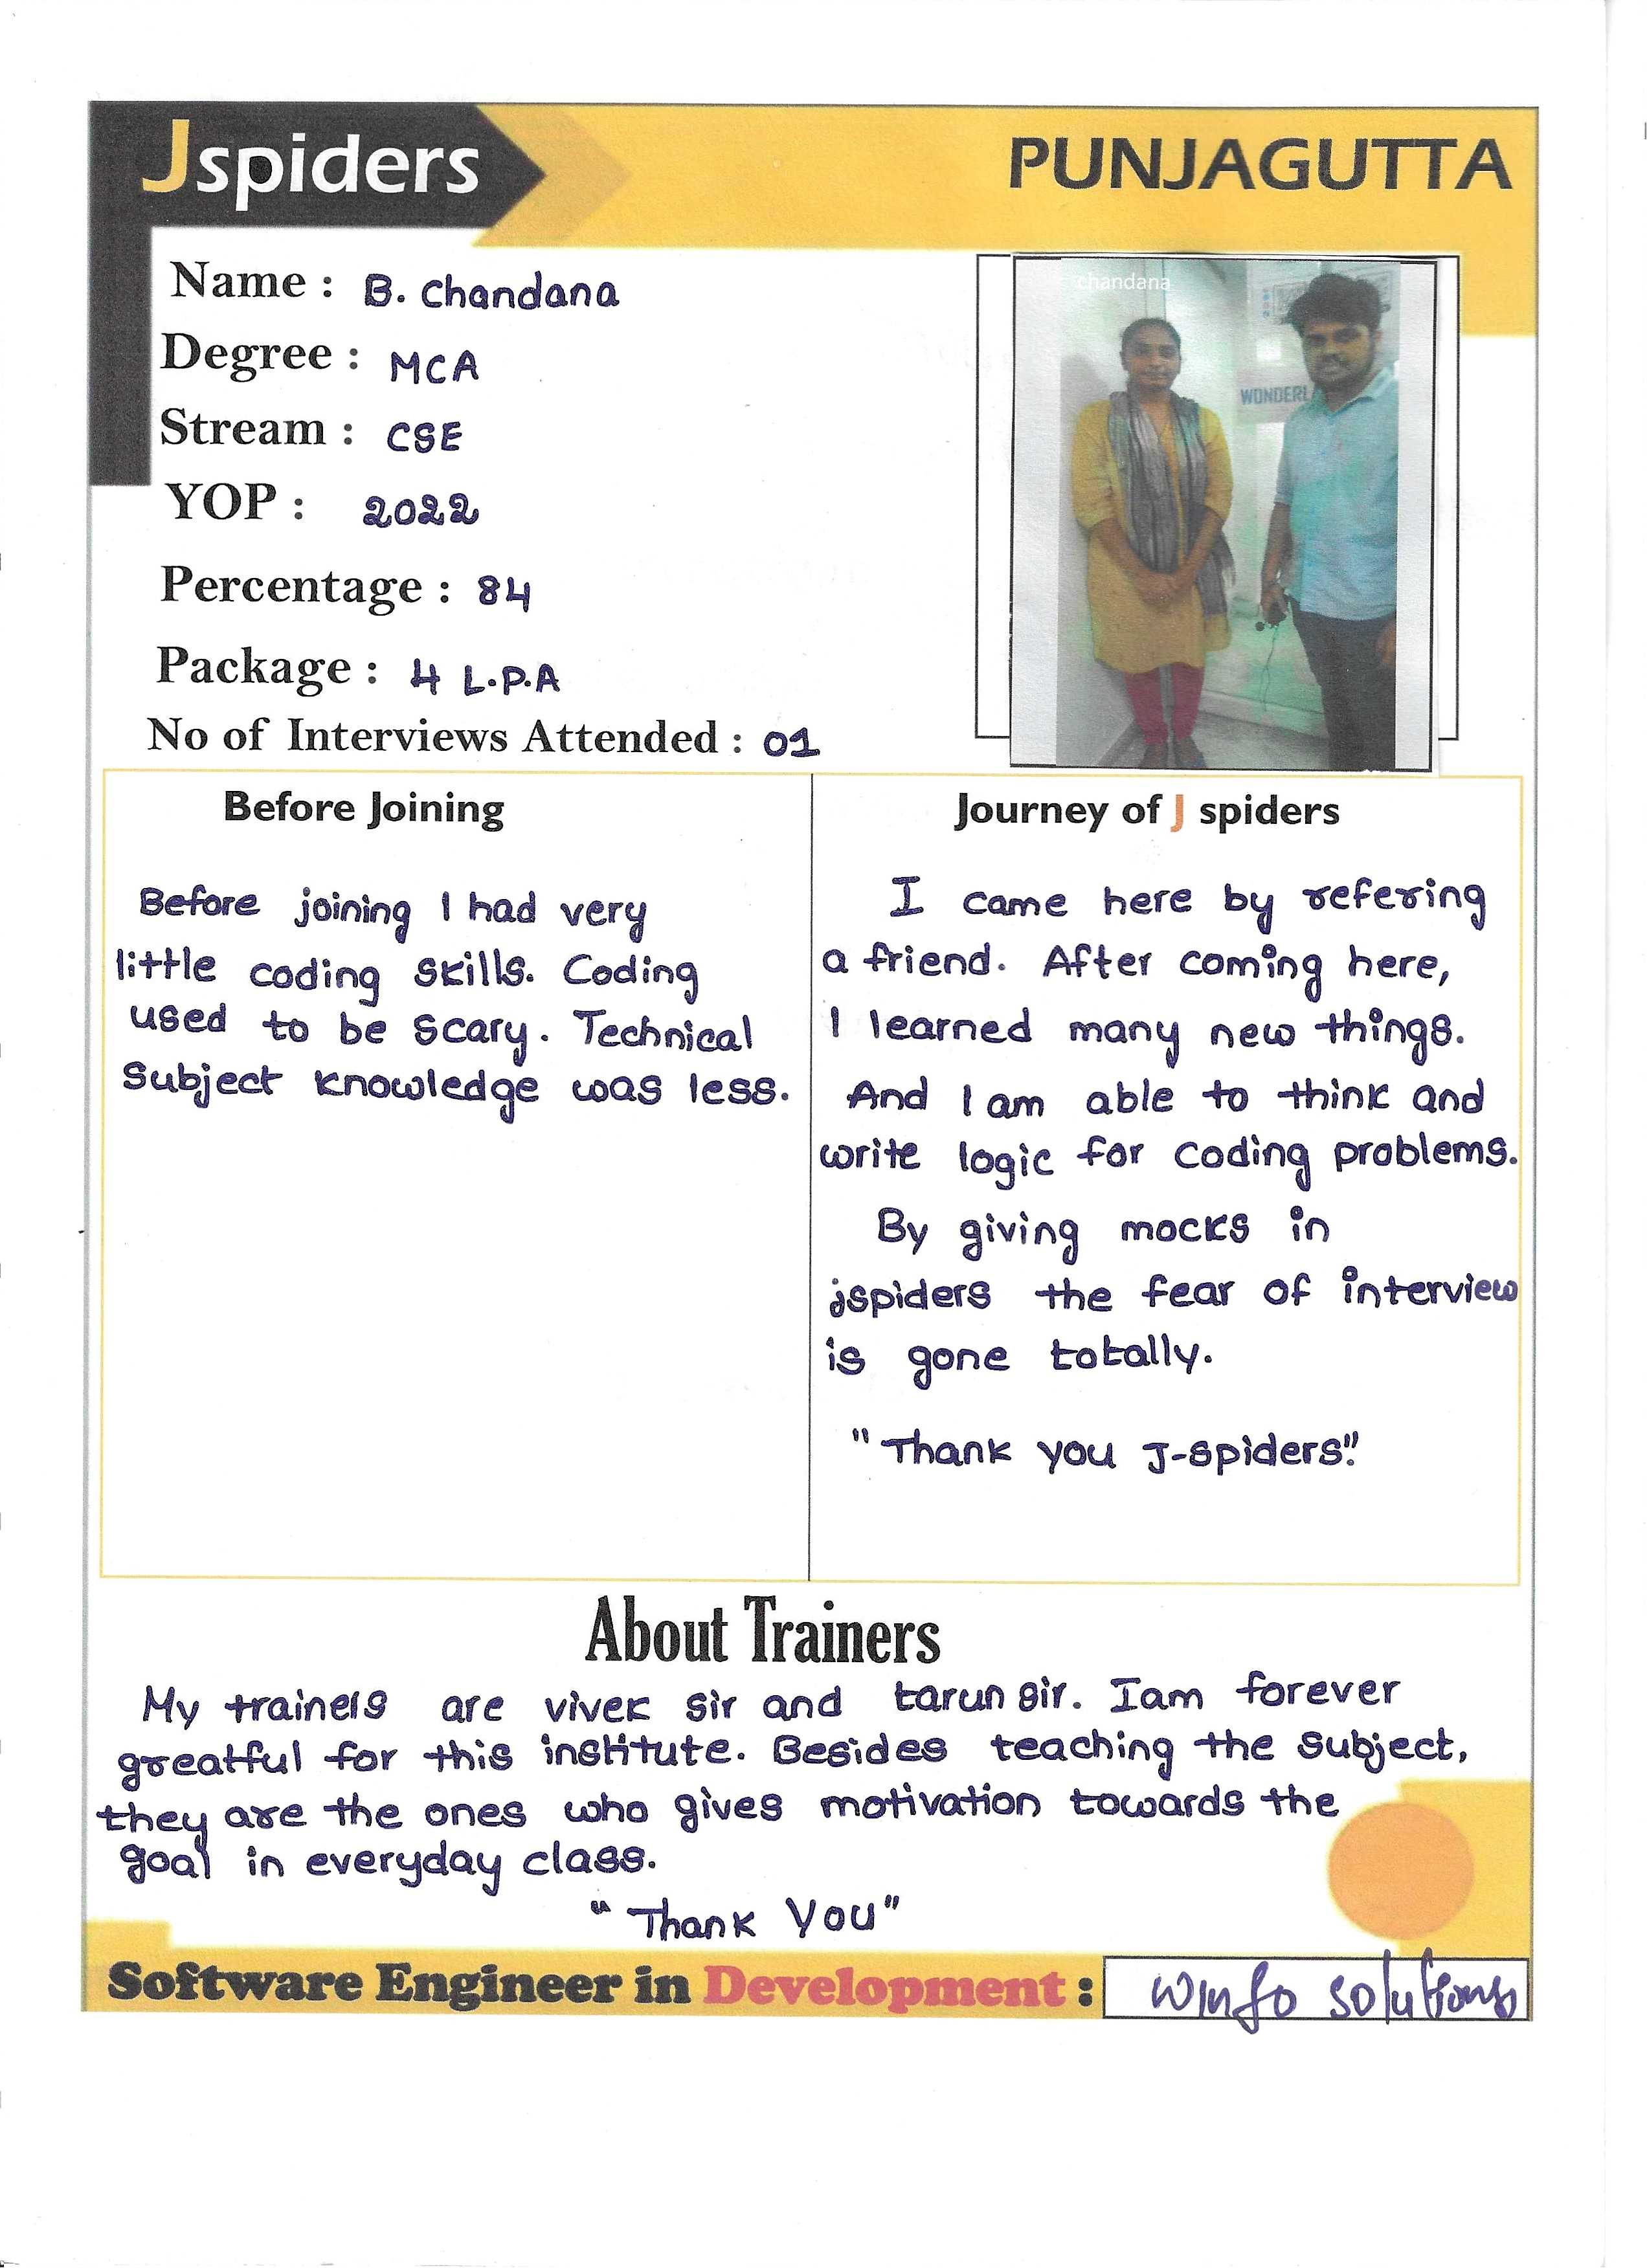 Jspiders
PUNJAGUTTA
Name : B. Chandana
Degree : MCA
Stream : CSE
YOP : 2022
Percentage : 84
Package : 4 L.P.A
No of Interviews Attended : 01
chandana
WONDERL
Before Joining
Before joining I had very
little coding skills. Coding
used to be scary. Technical
Subject knowledge was less.
Journey of J spiders
I came here by refering
a friend. After coming here,
I learned many new things.
And I am able to think and
write logic for coding problems.
By giving mocks in
jspiders the fear of interview
is gone totally.
"Thank you J-spiders"
About Trainers
My trainers are vivek sir and tarun sir. Iam forever
greatful for this institute. Besides teaching the subject,
they are the ones who gives motivation towards the
goal in everyday class.
"Thank You"
Software Engineer in Development : Winfo solutions